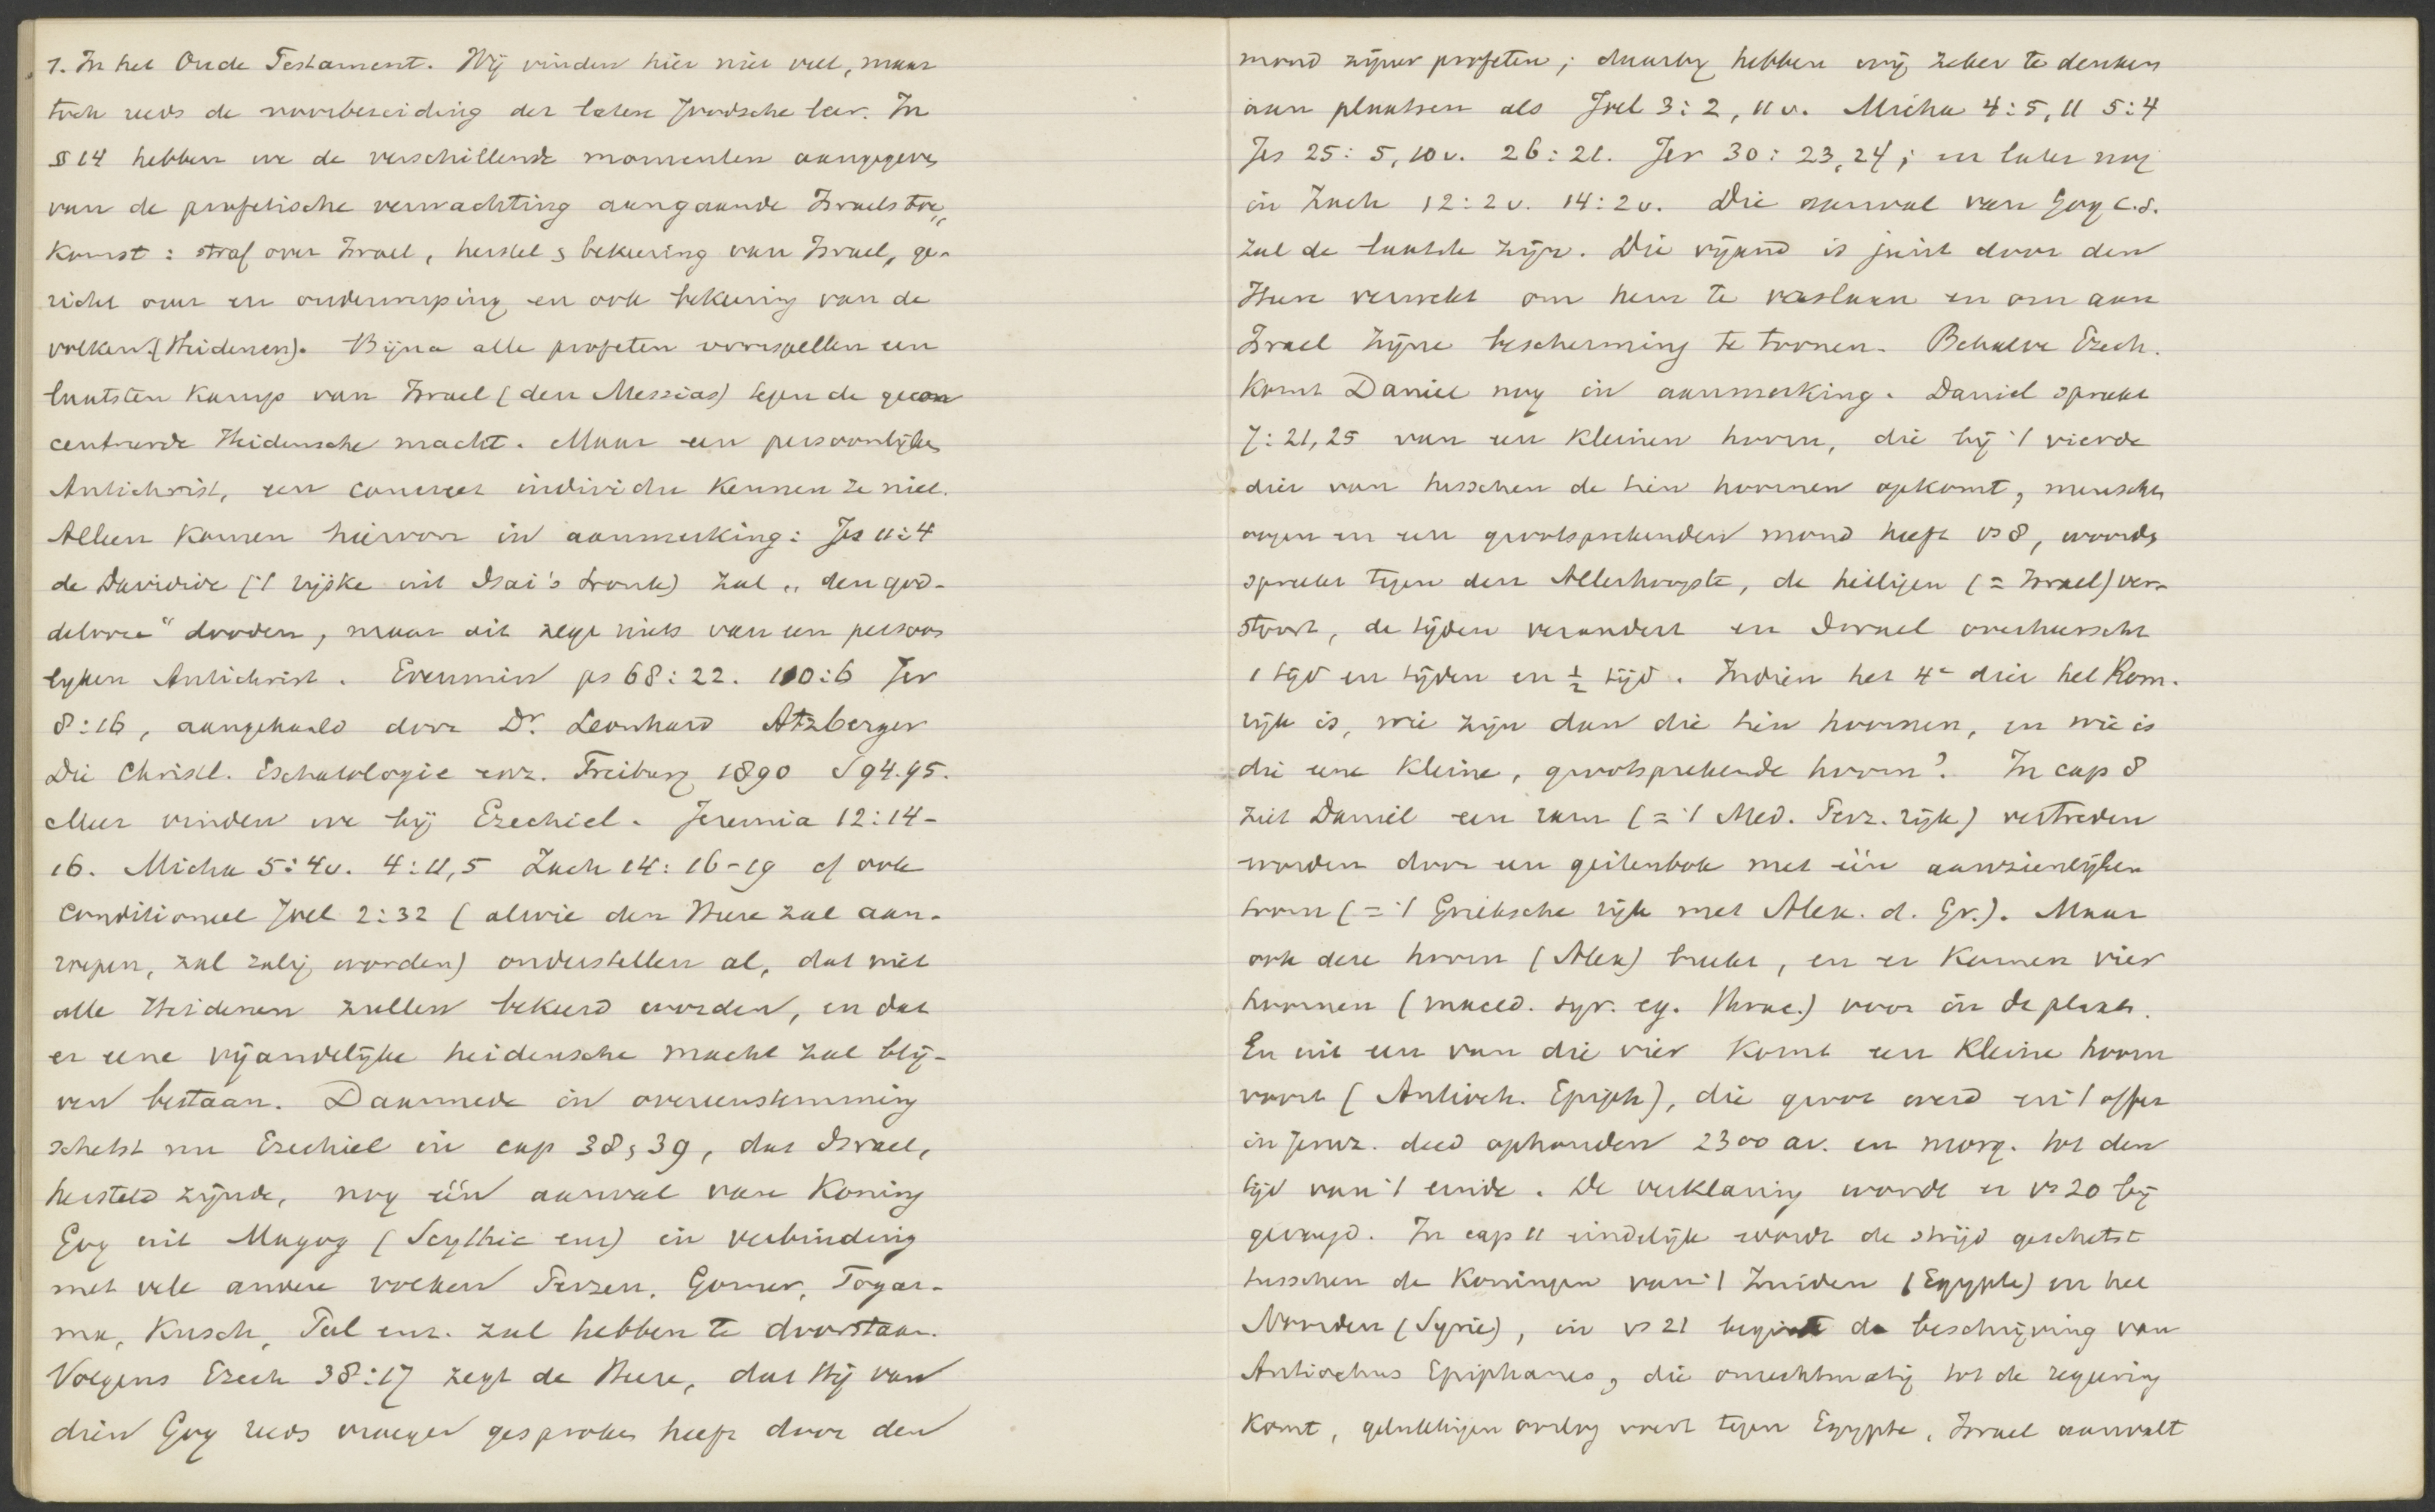 1. In het Oude Testament. Wij vinden hier niet veel, maar
toch reeds de voorbereiding der latere Joodsche leer. In
§ 14 hebben we de verschillende momenten aangegeven
van de profetische verwachting aangaande Israels toe„
komst: straf over Israel, herstel & bekeering van Israel, ge-
richt over en onderwerping en ook bekeering van de
volken (Heidenen). Bijna alle profeten voorspellen een
laatsten kamp van Israel (den Messias) tegen de gecon
centreerde Heidensche macht. Maar een persoonlijken
Antichrist, een concreet individu kennen ze niet.
Alleen komen hiervoor in aanmerking: Jes 11:4
de Davidide ('t rijske uit Isai's tronk) zal „den god-
delooze" dooden, maar dit zegt niets van een persoon
lyken Antichrist. Evenmin ps 68:22. 110:6 Jer
8:16, aangehaald door Dr. Leonhard Atzberger
Die Christl. Eschatologie enz. Freiburg 1890 S 94.95.
Meer vinden we bij Ezechiel. Jeremia 12:14-
16. Micha 5:4v. 4:11,5 Zach 14:16-19 cf ook
conditioneel Joel 2:32 (alwie den Heere zal aan-
roepen, zal zalig worden) onderstellen al, dat niet
alle Heidenen zullen bekeerd worden, en dat
er eene vijandelijke heidensche macht zal blij-
ven bestaan. Daarmede in overeenstemming
schetst nu Ezechiel in cap 38, 39, dat Israel,
hersteld zijnde, nog één aanval van koning
Gog uit Magog (Scythie enz) in verbinding
met vele andere volken Perzen, Gomer, Togar-
ma, Kusch, Put enz. zal hebben te doorstaan.
Volgens Ezech 38:17 zegt de Heere, dat Hij van
dien Gog reeds vroeger gesproken heeft door den
mond zijner profeten; daarbij hebben wij zeker te denken
aan plaatsen als Joel 3:2, 11v. Micha 4:5, 11 5:4
Jes 25:5, 10v. 26:21. Jer 30:23,24; en later nog
in Zach 12:2v. 14:2v. Die aanval van Gog c.s.
zal de laatste zijn. Die vijand is juist door den
Heere verwekt om hem te verslaan en om aan
Israel zijne bescherming te toonen. Behalve Ezech.
komt Daniel nog in aanmerking. Daniel spreekt
7:21,25 van een kleinen hoorn, die bij 't vierde
dier van tusschen de tien hoornen opkomt, menschen
oogen en een grootsprekenden mond heeft vs 8, woorden
spreekt tegen den Allerhoogste, de heiligen (= Israel) ver-
stoort, de tijden verandert en Israel overheerscht
1 tijd en tijden en ½ tijd. Indien het 4e dier het Rom.
rijk is, wie zijn dan die tien hoornen, en wie is
die eene kleine, grootsprekende hoorn? In cap 8
ziet Daniel een ram (= 't Med. Perz. rijk) vertreden
worden door een geitenbok met één aanzienlijken
hoorn (= 't Grieksche rijk met Alex. d. Gr.). Maar
ook deze hoorn (Alex) breekt, en er komen vier
hoornen (maced. syr. eg. Thrac.) voor in de plaats.
En uit een van die vier komt een kleine hoorn
voort (Antioch. Epiph), die groot werd en 't offer
in Jeruz. deed ophouden 2300 av. en morg. tot den
tijd van 't einde. De verklaring wordt er vs 20 bij
gevoegd. In cap 11 eindelijk wordt de strijd geschetst
tusschen de koningen van 't Zuiden (Egypte) en het
Noorden (Syrie), in vs 21 begint de beschrijving van
Antiochus Epiphanes, die onrechtmatig tot de regeering
komt, gelukkigen oorlog voert tegen Egypte, Israel aanvalt